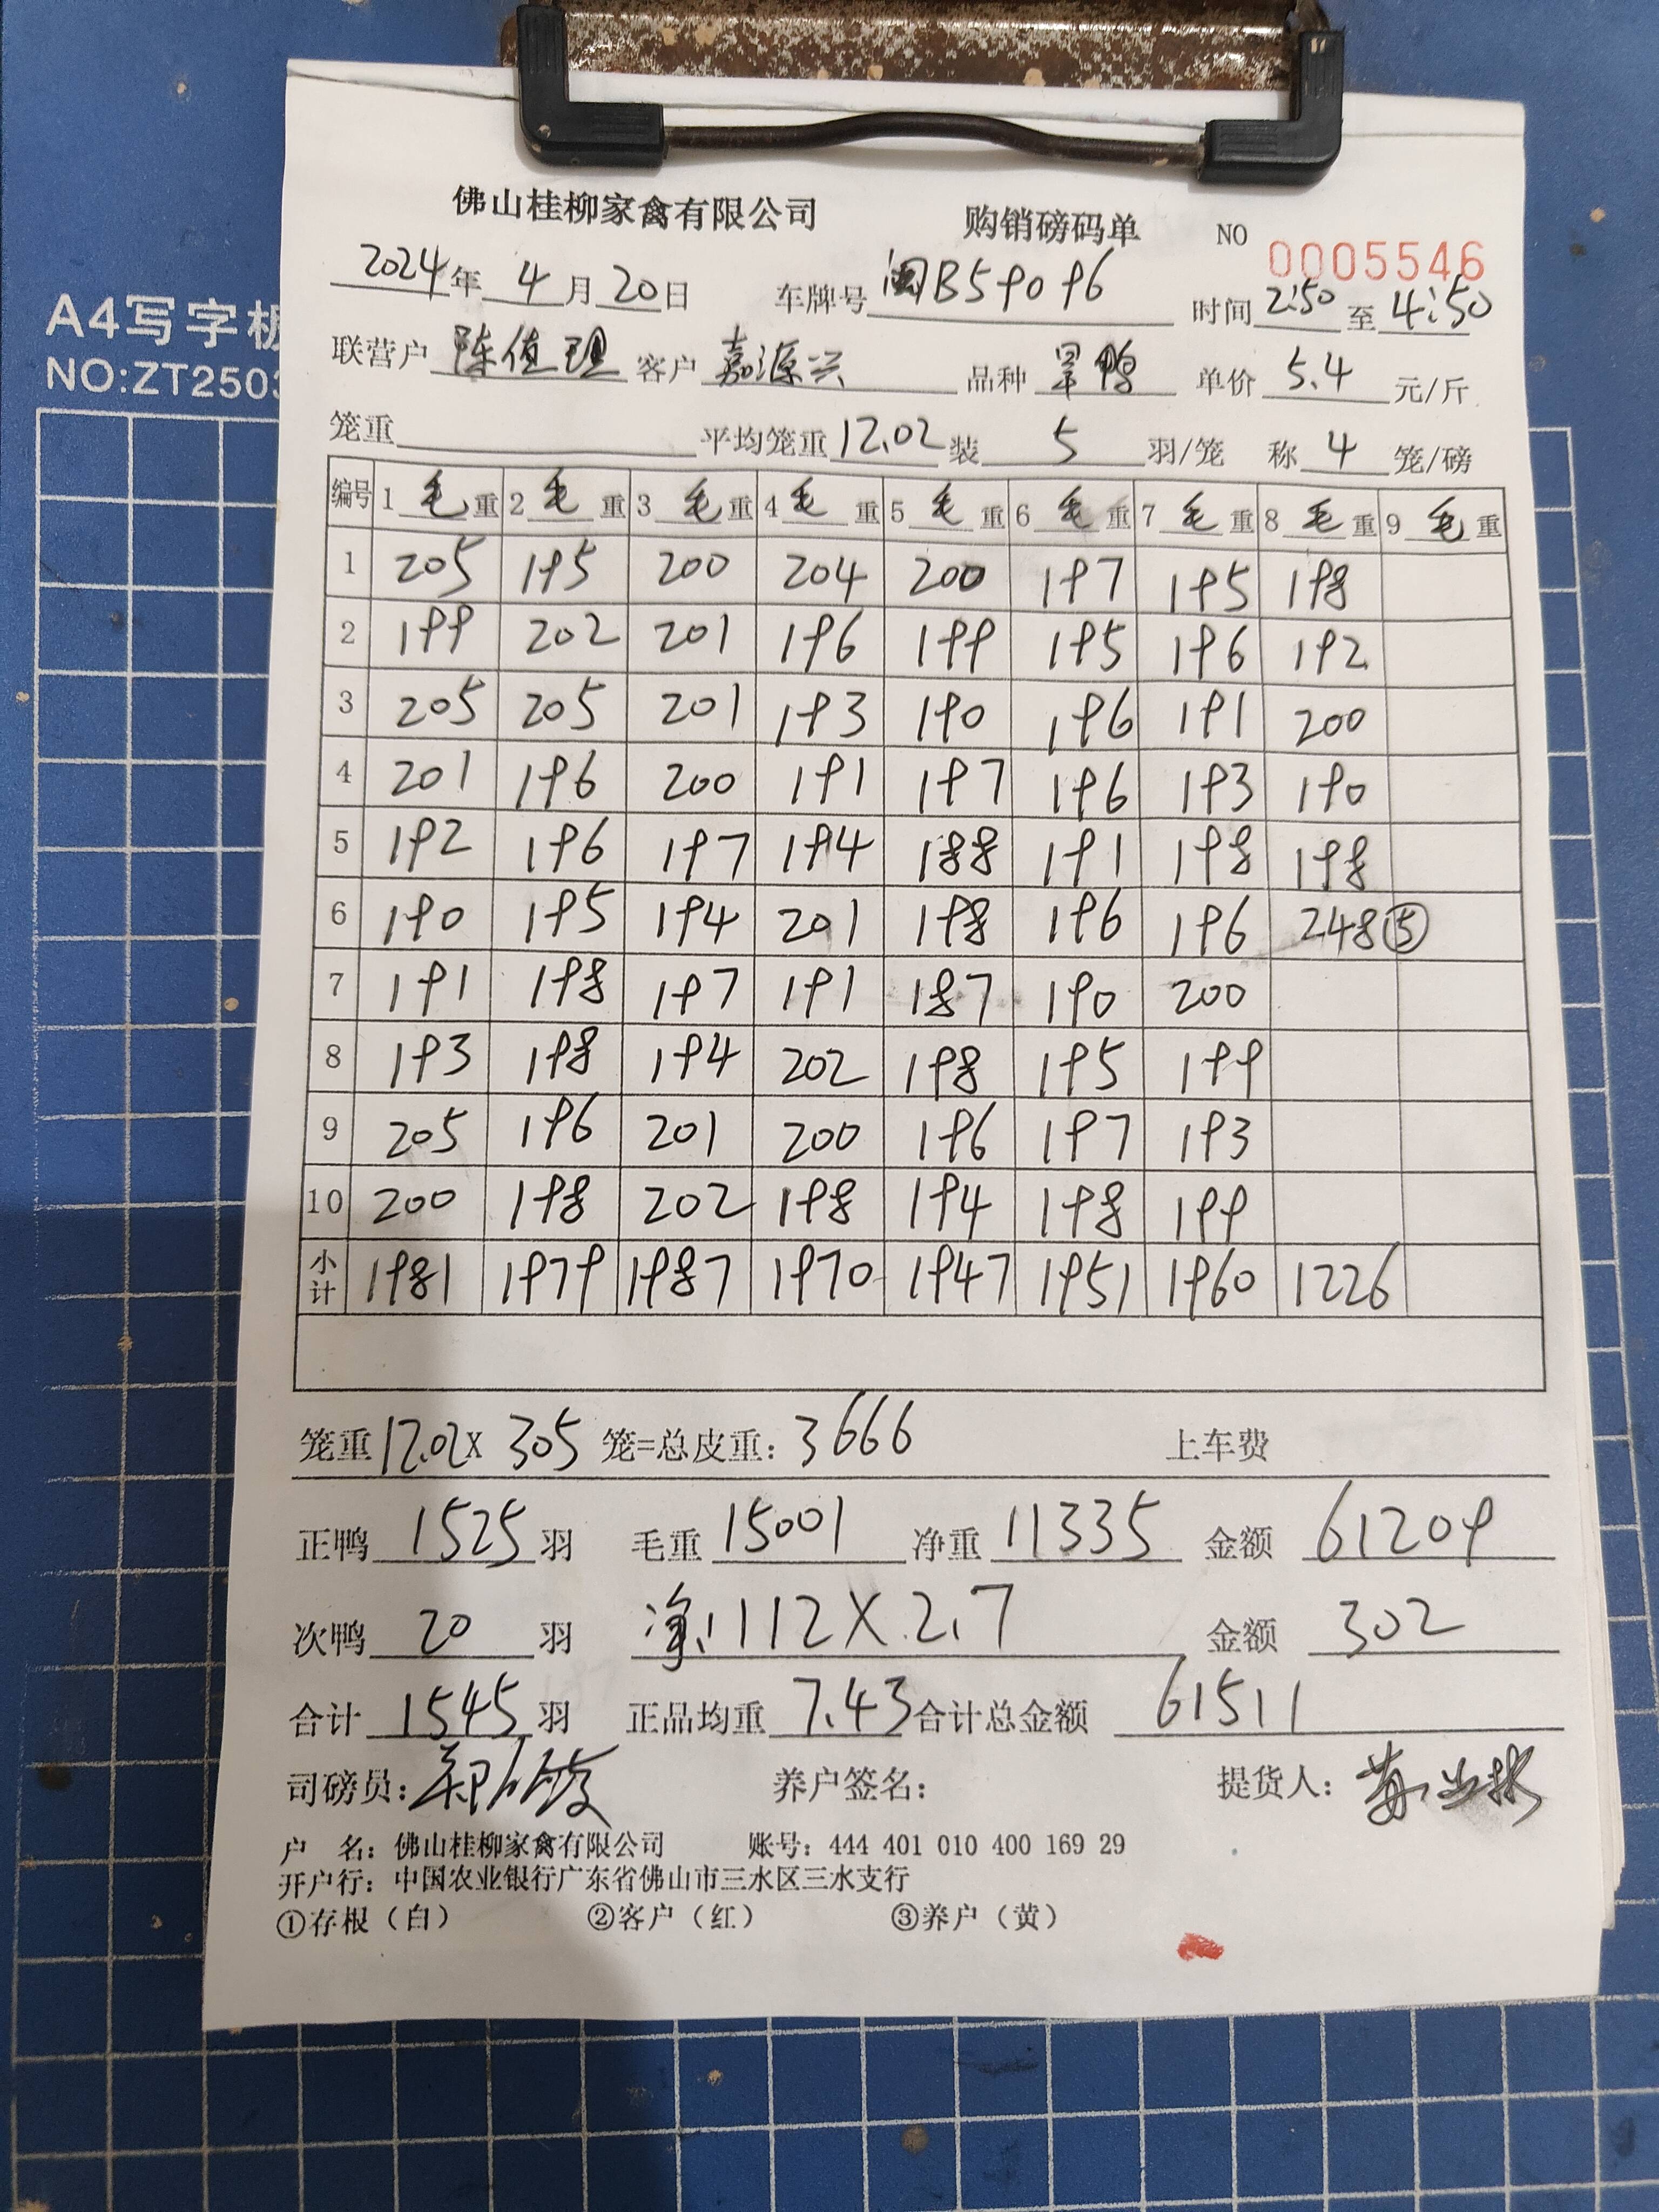 A4写字板
NO:ZT2503
佛山桂柳家禽有限公司 购销磅码单 NO 0005546
2024年 4月20日 车牌号 闽B59096 时间 2:50 至 4:50
联营户 陈值理 客户 嘉源兴 品种 旱鸭 单价 5.4 元/斤
笼重 平均笼重 12.02 装 5 羽/笼 称 4 笼/磅
编号 1 毛 重 2 毛 重 3 毛 重 4 毛 重 5 毛 重 6 毛 重 7 毛 重 8 毛 重 9 毛 重
1 205 195 200 204 200 197 195 198
2 199 202 201 196 199 195 196 192
3 205 205 201 193 190 196 191 200
4 201 196 200 191 197 196 193 190
5 192 196 197 194 188 191 198 198
6 190 195 194 201 198 196 196 248⑤
7 191 198 197 191 187 190 200
8 193 198 194 202 198 195 199
9 205 196 201 200 196 197 193
10 200 198 202 198 194 198 199
小计 1981 1979 1987 1970 1947 1951 1960 1226
笼重 12.02 X 305 笼=总皮重: 3666 上车费
正鸭 1525 羽 毛重 15001 净重 11335 金额 61209
次鸭 20 羽 净:112X2.7 金额 302
合计 1545 羽 正品均重 7.43 合计总金额 61511
司磅员: 养户签名: 提货人:
户 名: 佛山桂柳家禽有限公司 账号: 444 401 010 400 169 29
开户行: 中国农业银行广东省佛山市三水区三水支行
①存根（白） ②客户（红） ③养户（黄）